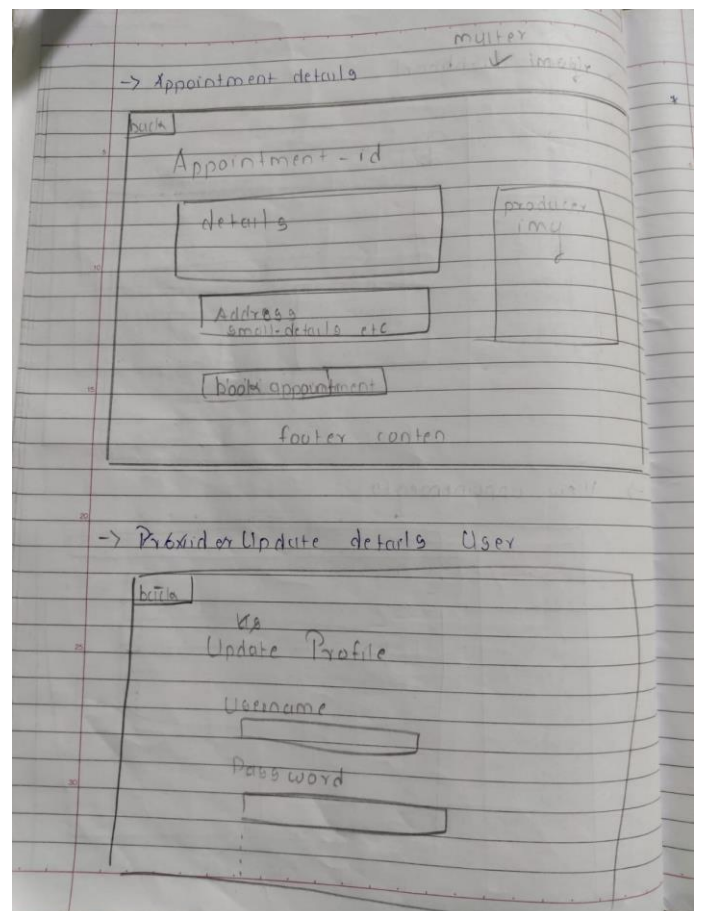 multer
-> Appointment details
back
Appointment - id
details
producer
img
Address
small-details etc
book appointment
footer conten
-> Provider Update details User
back
Update Profile
Username
Password